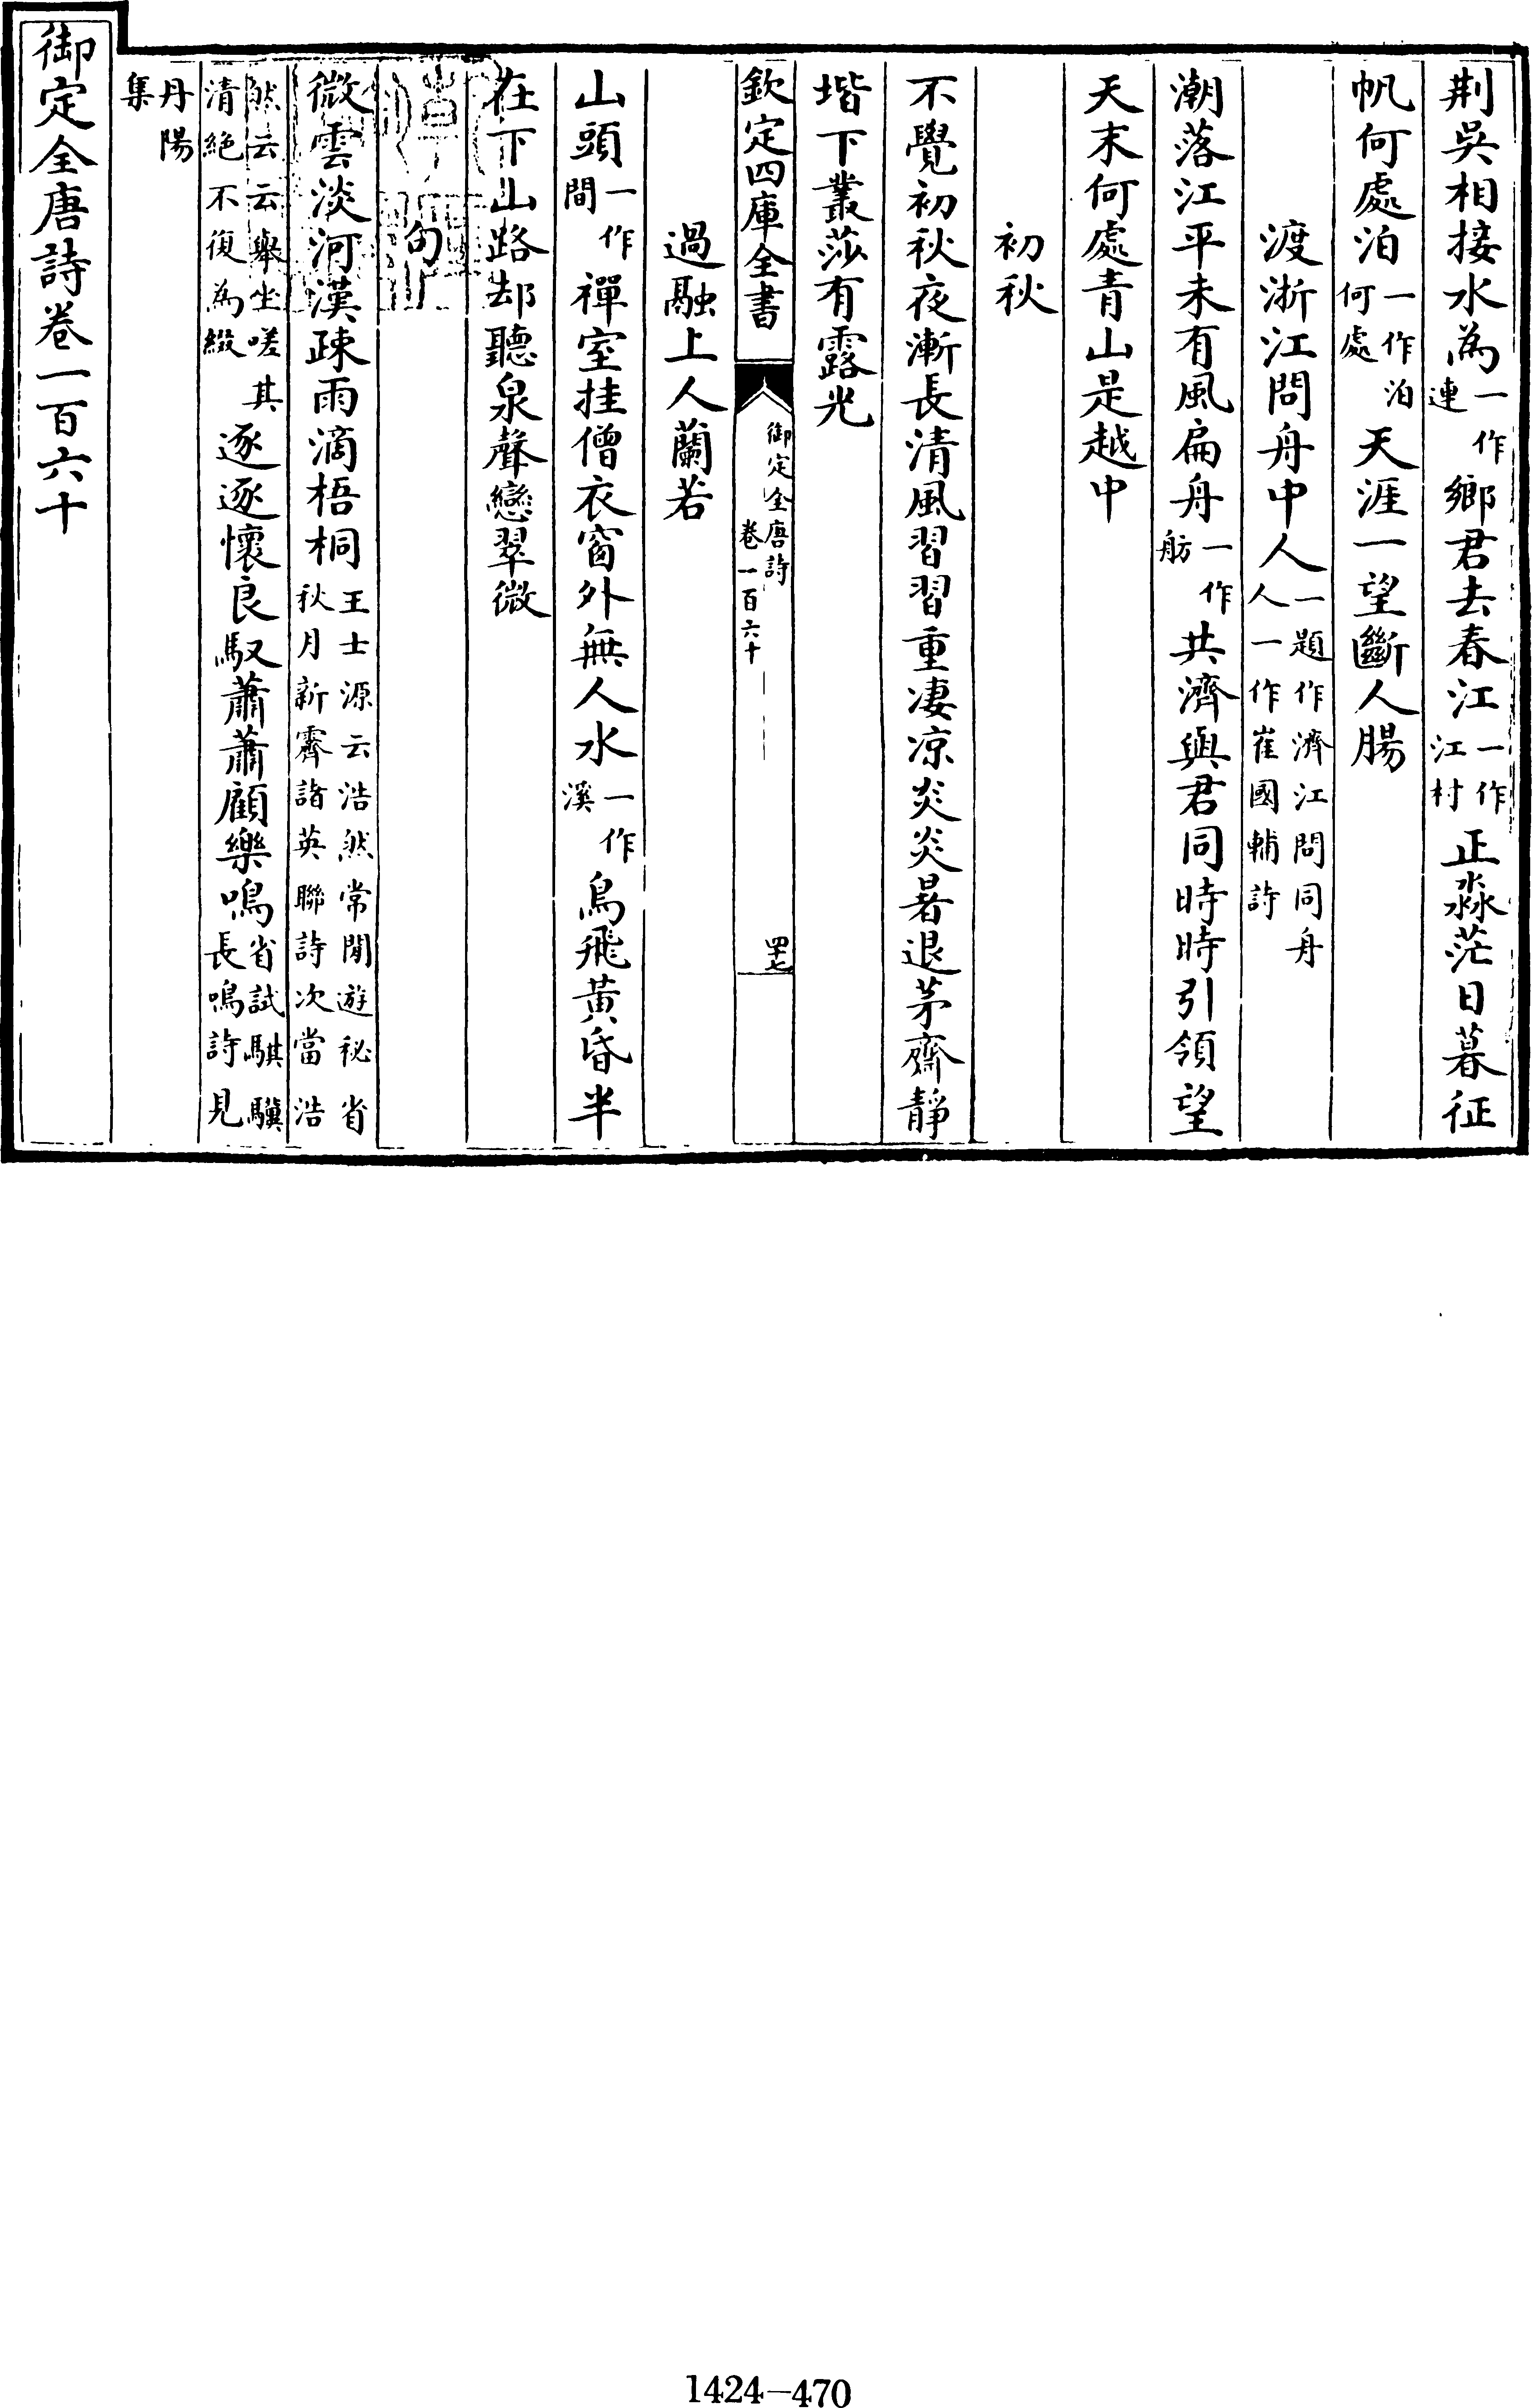 荆吳相接水為一作連鄉君去春江一作江村正淼茫日暮征
帆何處泊一作泊何處天涯一望斷人腸
渡浙江問舟中人一題作濟江問同舟人一作崔國輔詩
潮落江平未有風扁舟一作舫共濟與君同時時引領望
天末何處青山是越中
初秋
不覺初秋夜漸長清風習習重凄凉炎炎暑退茅齋靜
堦下叢莎有露光
欽定四庫全書
御定全唐詩
卷一百六十
四十七
過融上人蘭若
山頭一作間禪室挂僧衣窗外無人水一作溪鳥飛黃昏半
在下山路却聽泉聲戀翠微
句
微雲淡河漢疎雨滴梧桐王士源云浩然常閒遊秘省秋月新霽諸英聯詩次當浩
然云云舉坐嗟其清絶不復為綴逐逐懷良馭蕭蕭顧樂鳴省試騏驥長鳴詩見
丹陽集
御定全唐詩卷一百六十
1424-470